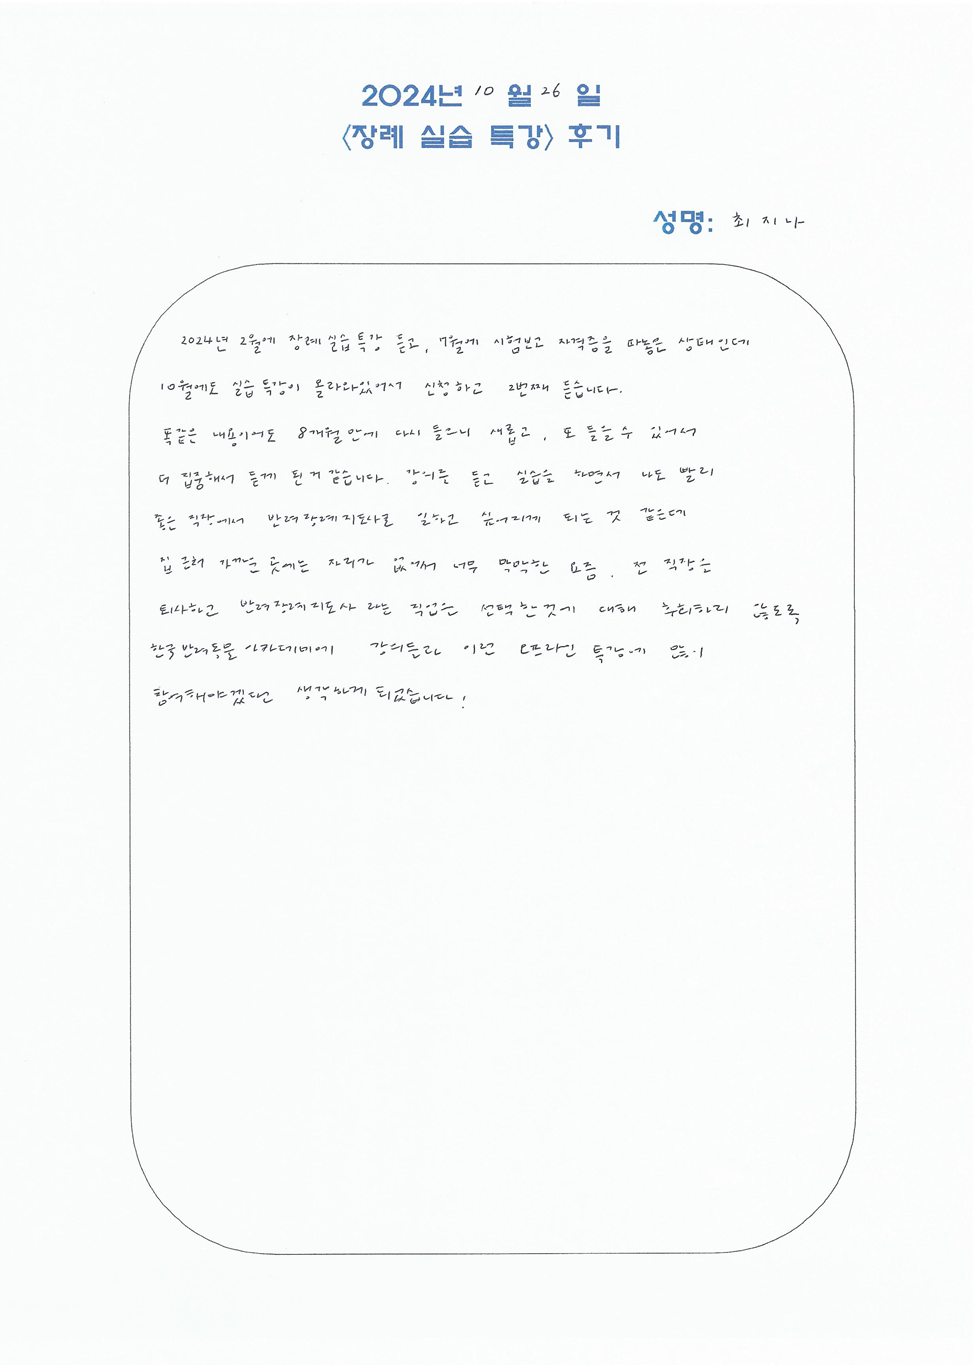 2024년 10월 26일
<장례 실습 특강> 후기
성명: 최지나
2024년 2월에 장례실습특강 듣고, 7월에 시험보고 자격증을 따놓은 상태인데
10월에도 실습특강이 올라와있어서 신청하고 2번째 듣습니다.
똑같은 내용이어도 8개월만에 다시 들으니 새롭고, 또 들을수 있어서
더 집중해서 듣게 된거 같습니다. 강의를 듣고 실습을 하면서 나도 빨리
좋은 직장에서 반려장례지도사로 일하고 싶어지게 되는 것 같은데
집 근처 가까운 곳에는 자리가 없어서 너무 막막한 요즘. 전 직장은
퇴사하고 반려장례지도사 라는 직업을 선택한것에 대해 후회하지 않도록
한국반려동물아카데미에 강의든지 이런 오프라인 특강에 많이
참여해야겠단 생각하게 되었습니다!